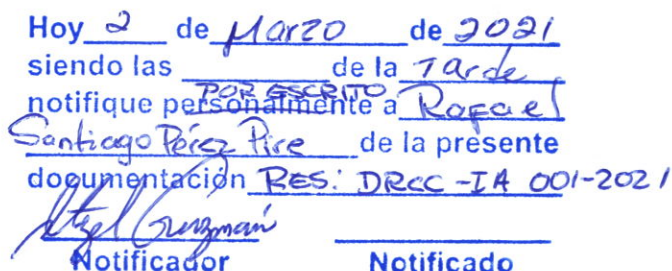 Hoy 2 de Marzo de 2021
siendo las de la Tarde
POR ESCRITO
notifique personalmente a Rafael
Santiago Pérez Pire de la presente
documentación RES: DRCC-IA 001-2021
Itzel Guzmán
Notificador Notificado